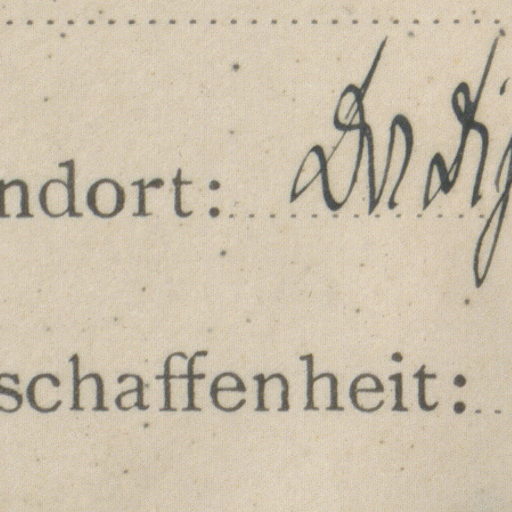 ndort:
schaffenheit: